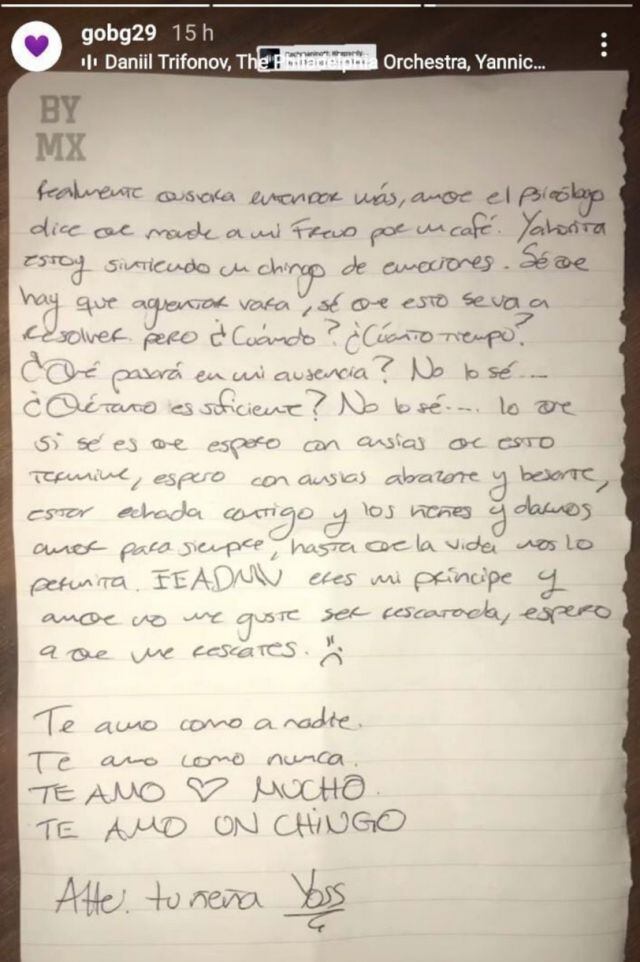 gobg29 15 h
Daniil Trifonov, The Philadelphia Orchestra, Yannic...
BY
MX
Realmente quisiera entender más, aunque el psicólogo
dice que mande a mi Freud por un café. Yahorita
estoy sintiendo un chingo de emociones. Sé que
hay que aguentar vara, sé que esto se va a
resolver pero ¿Cuándo? ¿Cuánto tiempo?
¿Qué pasará en mi ausencia? No lo sé....
¿Qué tanto es suficiente? No lo sé.... lo que
si sé es que espero con ansias que esto
termine, espero con ansias abrazarte y besarte,
estar echada contigo y los nenes y darnos
amor para siempre, hasta que la vida nos lo
permita. eres mi príncipe y
aunque no me guste ser rescatada, espero
a que me rescates.
Te amo como a nadie.
Te amo como nunca.
TE AMO ♡ MUCHO.
TE AMO UN CHINGO
Atte. tu nena Yoss